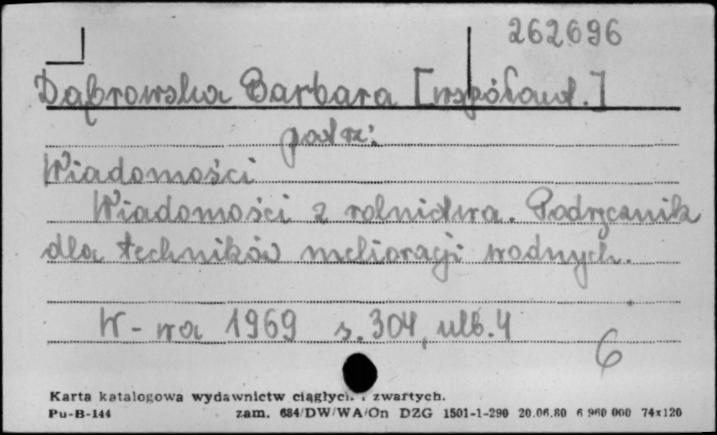 262696
Dąbrowska Barbara [współaut.]
patrz:
Wiadomości
Wiadomości z rolnictwa. Podręcznik
dla techników melioracji wodnych.
W-wa 1969 s. 304, nlb. 4
6
Karta katalogowa wydawnictw ciągłych i zwartych.
Pu-B-144 zam. 684/DW/WA/On DZG 1501-1-290 20.06.80 6 960 000 74x120